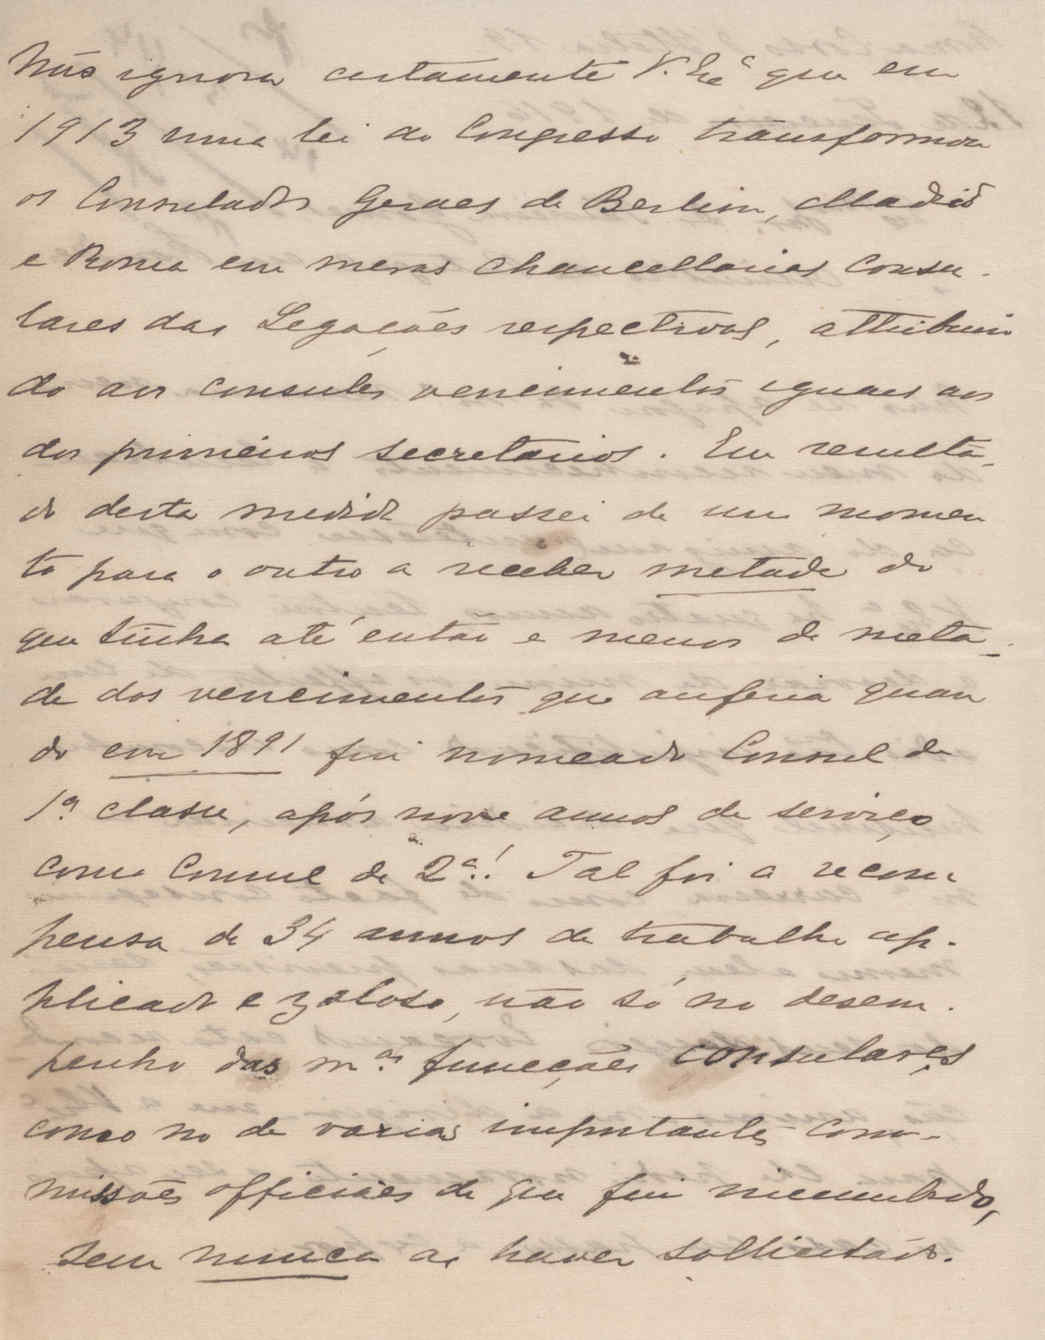 Não ignora certamente V. Exª que em
1913 uma lei do Congresso transformou
os Consulados Geraes de Berlim, Madrid
e Roma em meras chancellarias consu-
lares das Legações respectivas, attribuin
do aos consules vencimentos iguaes aos
dos primeiros secretarios. Em resulta-
do desta medida passei de um momen
to para o outro a receber metade do
que tinha até então e menos de meta-
de dos vencimentos que auferia quan
do em 1891 fui nomeado Consul de
1ª classe, após nove annos de serviço
como Consul de 2ª! Tal foi a recom
pensa de 34 annos de trabalho ap-
plicado e zeloso, não só no desem-
penho das mªs funcções consulares
como no de varias importantes com-
missões officiaes de que fui incumbido,
sem nunca as haver sollicitado.